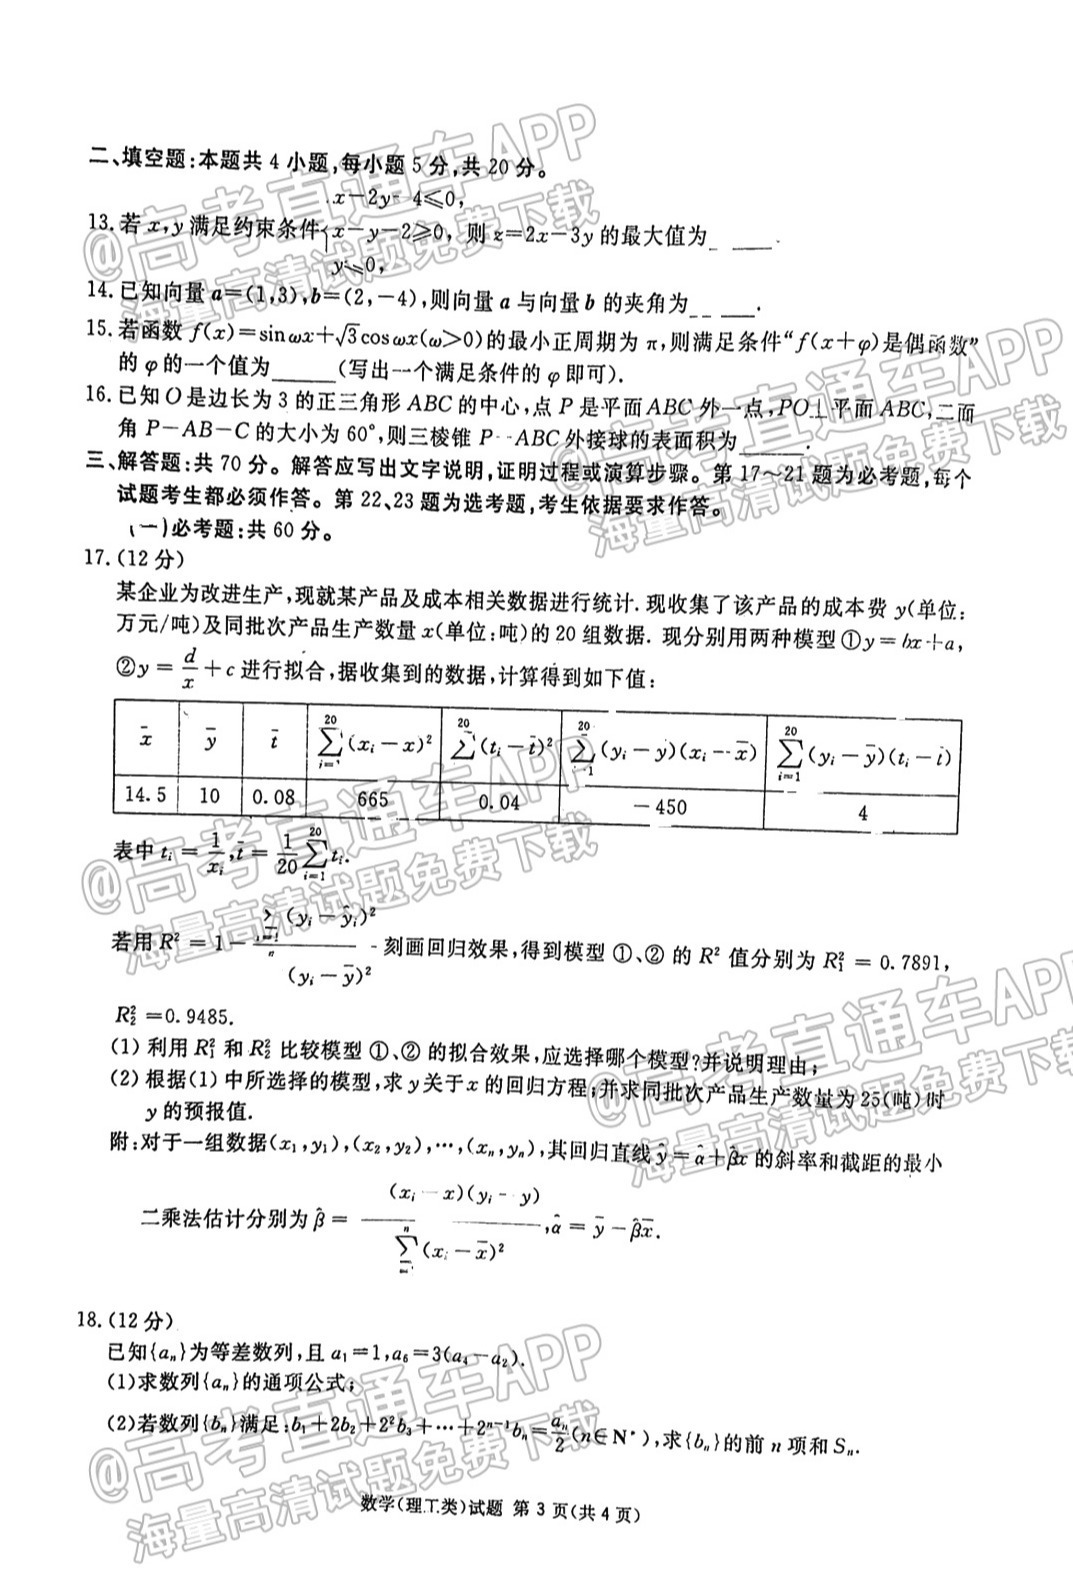 二、填空题:本题共 4 小题,每小题 5 分,共 20 分。
13.若 x,y 满足约束条件{x-2y-4≤0, x-y-2≥0, y≤0, 则 z=2x-3y 的最大值为____.
14.已知向量 a=(1,3),b=(2,-4),则向量 a 与向量 b 的夹角为____.
15.若函数 f(x)=sinωx+√3cosωx(ω>0)的最小正周期为 π,则满足条件“f(x+φ)是偶函数”
的 φ 的一个值为____(写出一个满足条件的 φ 即可).
16.已知 O 是边长为 3 的正三角形 ABC 的中心,点 P 是平面 ABC 外一点,PO⊥平面 ABC,二面
角 P-AB-C 的大小为 60°,则三棱锥 P-ABC 外接球的表面积为____.
三、解答题:共 70 分。解答应写出文字说明,证明过程或演算步骤。第 17~21 题为必考题,每个
试题考生都必须作答。第 22、23 题为选考题,考生依据要求作答。
(一)必考题:共 60 分。
17.(12 分)
某企业为改进生产,现就某产品及成本相关数据进行统计.现收集了该产品的成本费 y(单位:
万元/吨)及同批次产品生产数量 x(单位:吨)的 20 组数据.现分别用两种模型①y=bx+a,
②y=d/x+c 进行拟合,据收集到的数据,计算得到如下值:
x̄ ȳ t̄ ∑(i=1→20)(xᵢ-x)² ∑(20)(tᵢ-t̄)² ∑(i=1→20)(yᵢ-y)(xᵢ-x̄) ∑(i=1→20)(yᵢ-ȳ)(tᵢ-t̄)
14.5 10 0.08 665 0.04 -450 4
表中 tᵢ=1/xᵢ,t̄=1/20 ∑(i=1→20)tᵢ.
若用 R²=1-∑(yᵢ-ŷᵢ)²/(yᵢ-ȳ)² 刻画回归效果,得到模型 ①、② 的 R² 值分别为 R₁²=0.7891,
R₂²=0.9485.
(1) 利用 R₁² 和 R₂² 比较模型 ①、② 的拟合效果,应选择哪个模型?并说明理由;
(2) 根据(1) 中所选择的模型,求 y 关于 x 的回归方程;并求同批次产品生产数量为 25(吨)时
y 的预报值.
附:对于一组数据(x₁,y₁),(x₂,y₂),…,(xₙ,yₙ),其回归直线 ŷ=α̂+β̂x 的斜率和截距的最小
二乘法估计分别为 β̂=(xᵢ-x)(yᵢ-y)/∑(n)(xᵢ-x̄)²,α̂=ȳ-β̂x̄.
18.(12 分)
已知{aₙ}为等差数列,且 a₁=1,a₆=3(a₄-a₂).
(1)求数列{aₙ}的通项公式;
(2)若数列{bₙ}满足:b₁+2b₂+2²b₃+…+2ⁿ⁻¹bₙ=aₙ/2(n∈N*),求{bₙ}的前 n 项和 Sₙ.
数学(理工类)试题 第 3 页(共 4 页)
@高考直通车APP
海量高清试题免费下载
@高考直通车APP
海量高清试题免费下载
@高考直通车APP
海量高清试题免费下载
@高考直通车APP
海量高清试题免费下载
@高考直通车APP
海量高清试题免费下载
@高考直通车APP
海量高清试题免费下载